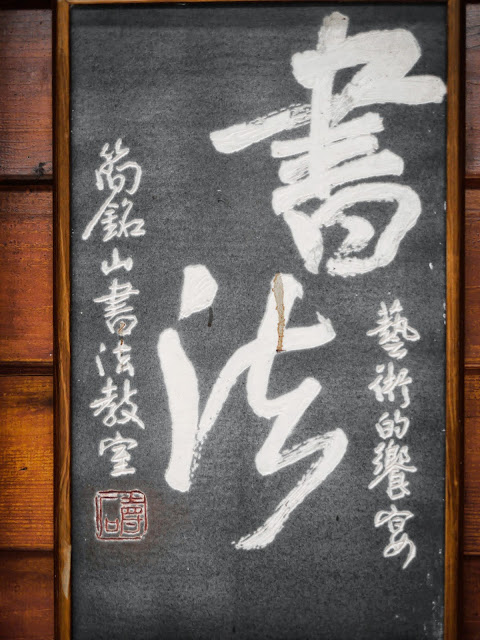 藝術的饗宴
書法
簡銘山書法教室